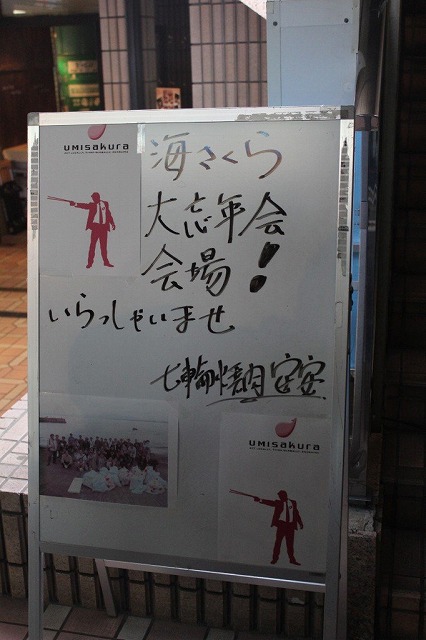 UMISAKURA
海さくら
大忘年会
会場!
いらっしゃいませ
七輪焼肉 安安
UMISAKURA